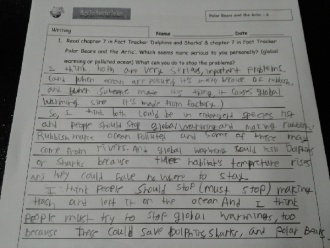 Polar Bears and the Artic. 6
Writing
1. Read chapter 7 in Fact Tracker 'Dolphins and Sharks' & chapter 7 in Fact Tracker
Polar Bears and the Artic. Which seems more serious to you personally? (global
warming or polluted ocean) What can you do to stop the problems?
I think both are very serious, important problems
and when ocean are polluted it's
and when someone make this thing it causes global
warming, since it's made from factory.)
So, I think both could be in endangerd species list
and people should stop global warming and making rubbish.
Rubbish make ocean polluted and some of these may
came from rivers. And global warming could kill Dolphins
or sharks because their habitat's temprature rises
and they could have no where to stay.
I think people should stop (must stop) making
trash, and left it on the ocean. And I think
people must try to stop global warming, too
because these could save dolphins, sharks, and polar bears.